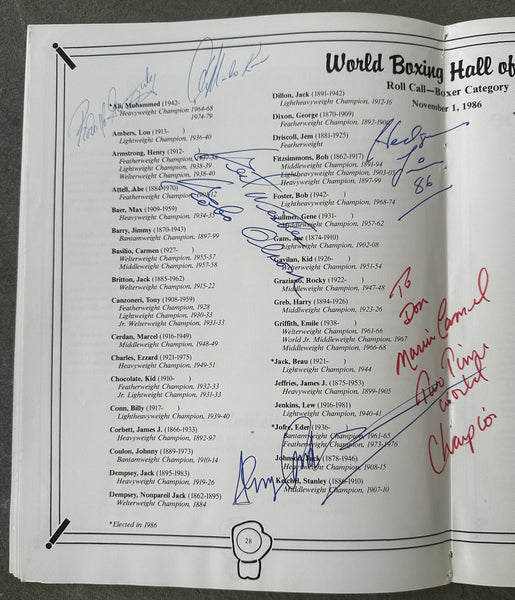 World Boxing Hall of
Roll Call—Boxer Category
November 1, 1986
*Ali, Muhammed (1942-
Heavyweight Champion, 1964-68
1974-79
Ambers, Lou (1913- )
Lightweight Champion, 1936-40
Armstrong, Henry (1912-
Featherweight Champion, 1937-38
Welterweight Champion, 1938-40
Lightweight Champion, 1938-39
Attell, Abe (1884-1970)
Baer, Max (1909-1959)
Heavyweight Champion, 1934-35
Barry, Jimmy (1870-1943)
Bantamweight Champion, 1897-99
Basilio, Carmen (1927- )
Welterweight Champion, 1955-57
Middleweight Champion, 1957-58
Britton, Jack (1885-1962)
Welterweight Champion, 1915-22
Canzoneri, Tony (1908-1959)
Featherweight Champion, 1928
Lightweight Champion, 1930-33
Jr. Welterweight Champion, 1931-33
Cerdan, Marcel (1916-1949)
Middleweight Champion, 1948-49
Charles, Ezzard (1921-1975)
Heavyweight Champion, 1949-51
Chocolate, Kid (1910- )
Featherweight Champion, 1932-33
Jr. Lightweight Champion, 1931-33
Conn, Billy (1917- )
Lightheavyweight Champion, 1939-40
Corbett, James J. (1866-1933)
Heavyweight Champion, 1892-97
Coulon, Johnny (1889-1973)
Bantamweight Champion, 1910-14
Dempsey, Jack (1895-1983)
Heavyweight Champion, 1919-26
Dempsey, Nonpareil Jack (1862-1895)
Welterweight Champion, 1884
*Elected in 1986
Dillon, Jack (1891-1942)
Lightheavyweight Champion, 1912-16
Dixon, George (1870-1909)
Featherweight Champion, 1892-1900
Driscoll, Jem (1881-1925)
Featherweight
Fitzsimmons, Bob (1862-1917)
Middleweight Champion, 1891-94
Lightheavyweight Champion, 1903-05
Heavyweight Champion, 1897-99
Foster, Bob (1942- )
Lightheavyweight Champion, 1968-74
Fullmer, Gene (1931- )
Middleweight Champion, 1957-62
Gans, Joe (1874-1910)
Lightweight Champion, 1902-08
Gavilan, Kid (1926-
Welterweight Champion, 1951-54
Graziano, Rocky (1922-
Middleweight Champion, 1947-48
Greb, Harry (1894-1926)
Middleweight Champion, 1923-26
Griffith, Emile (1938-
Welterweight Champion, 1961-66
World Jr. Middleweight Champion, 1967
Middleweight Champion, 1966-68
*Jack, Beau (1921-
Lightweight Champion, 1944
Jeffries, James J. (1875-1953)
Heavyweight Champion, 1899-1905
Jenkins, Lew (1916-1981)
Lightweight Champion, 1940-41
*Jofre, Eder (1936-
Bantamweight Champion, 1961-65
Featherweight Champion, 1973-1976
Johnson, Jack (1878-1946)
Heavyweight Champion, 1908-15
Ketchel, Stanley (1886-1910)
Middleweight Champion, 1907-10
86
To
Don
Marvin Camel
Two Time
World
Champion
28